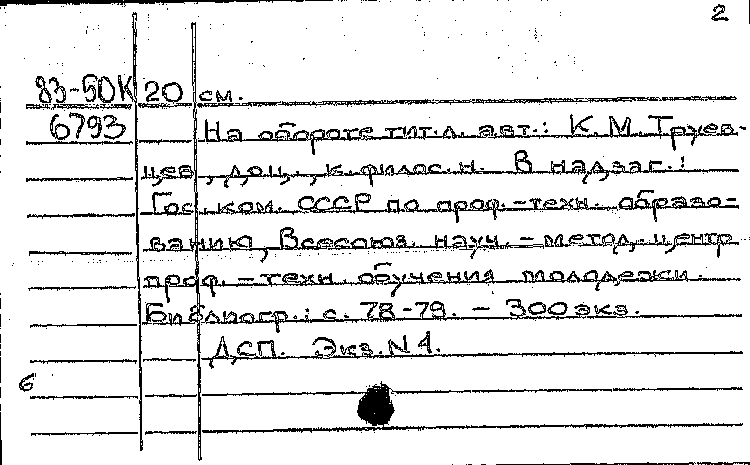 2
83-50К 20 см.
6793 На обороте тит.л. авт.: К.М.Труев-
цев, доц., к.филос.н. В надзаг.:
Гос.ком. СССР по проф.-техн. образо-
ванию, Всесоюз. науч.-метод.центр
проф.-техн.обучения молодежи.
Библиогр.: с. 78-79. - 300экз.
ДСП. Экз.N1.
6